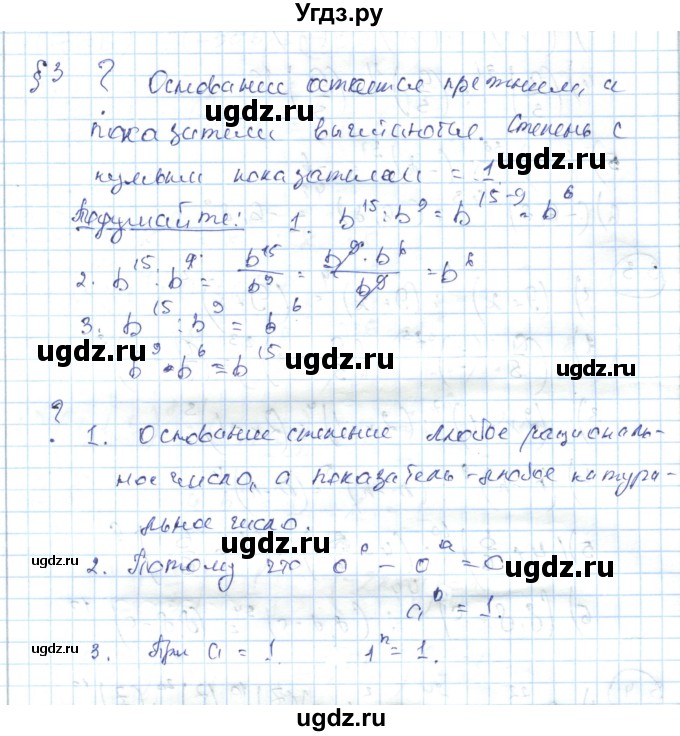 Угдз.ру
§3 ? Основание остается прежним, а
ugdz.ru
показатели вычитаются. Степень с
ugdz.ru
нулевым показателем = 1.
ugdz.ru
Подумайте: 1. b¹⁵ : b⁹ = b¹⁵⁻⁹ = b⁶
2. b¹⁵ : b⁹ = b¹⁵/b⁹ = b⁹ · b⁶/b⁹ = b⁶
3. b¹⁵ : b⁹ = b⁶
ugdz.ru ugdz.ru
b⁹ · b⁶ = b¹⁵
? 1. Основание степени любое рациональ-
ное число, а показатель - любое натура-
льное число.
ugdz.ru
ugdz.ru 2. Потому что 0⁰ – 0ᵃ = 0
ugdz.ru
a⁰ = 1.
ugdz.ru 3. При a = 1 1ⁿ = 1.
ugdz.ru